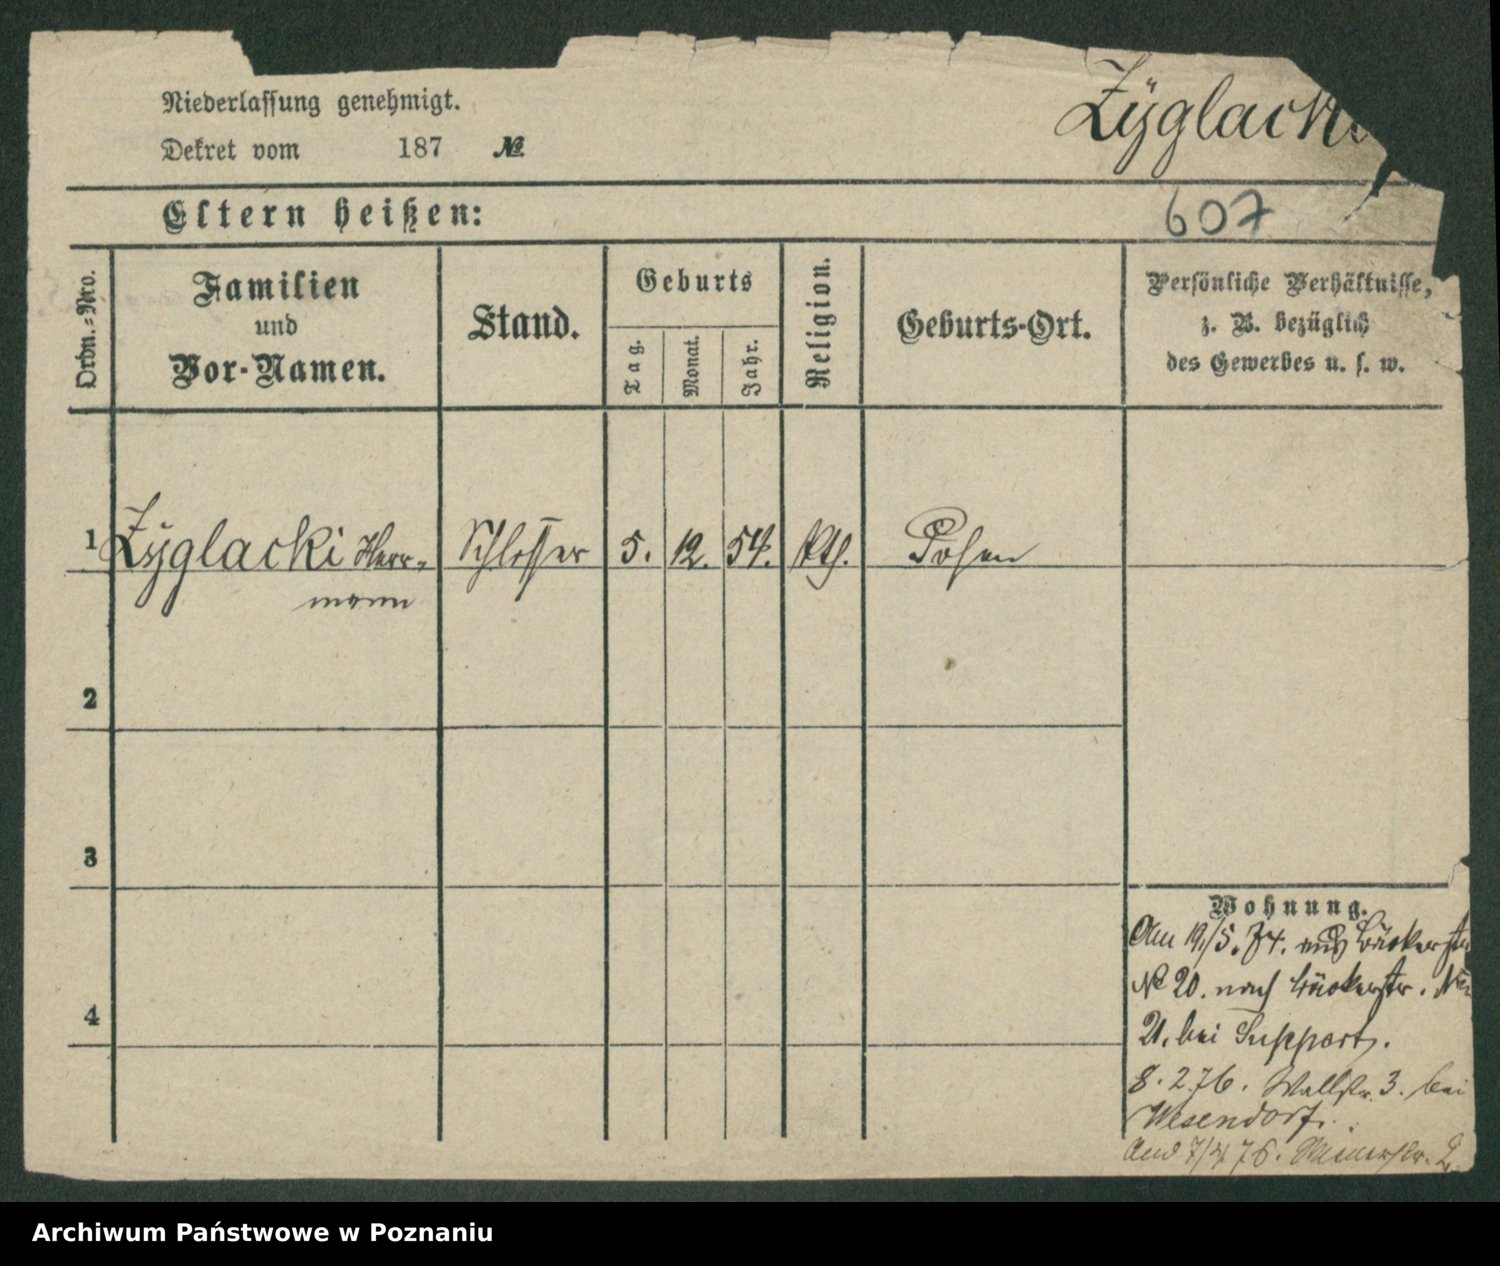 Niederlassung genehmigt.
Zÿglacki
Dekret vom 187 №
Eltern heißen:
607
Ordn.-Nro.
Familien
und
Vor-Namen.
Stand.
Geburts
Tag.
Monat.
Jahr.
Religion.
Geburts-Ort.
Persönliche Verhältnisse,
z. B. bezüglich
des Gewerbes u. s. w.
1 Zÿglacki Herr- Schlosser 5. 12. 54. kth. Posen
mann
2
3
4
Wohnung.
Am 19/5. 74. aus Bäckerstr.
№ 20. nach Bäckerstr. №
21. bei Suppart.
8. 2 76. Wallstr. 3. bei
Wesendorf.
And 7/4 76. 2.
Archiwum Państwowe w Poznaniu